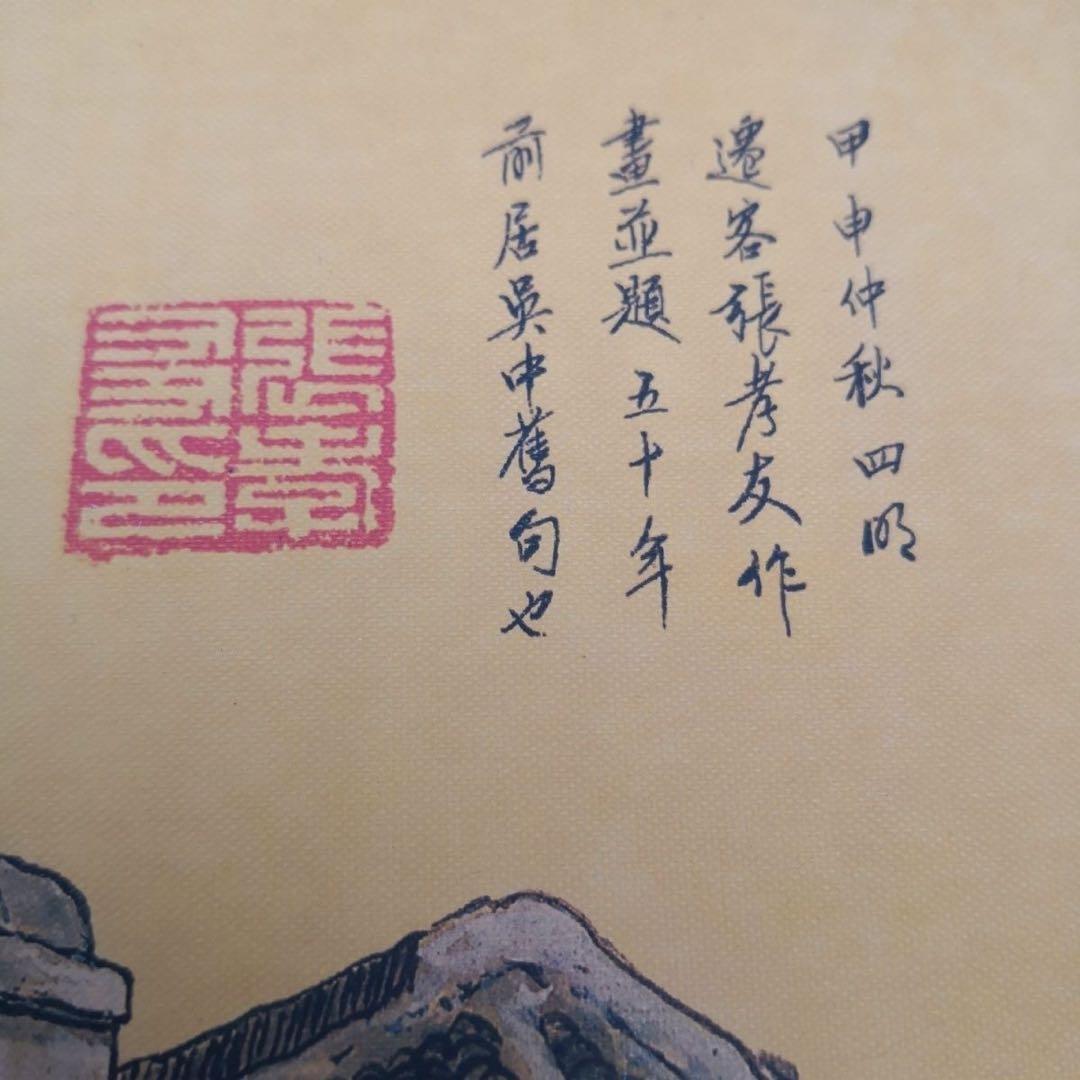 甲申仲秋四明
遷客張孝友作
畫並題 五十年
前居吳中舊句也
張孝友印